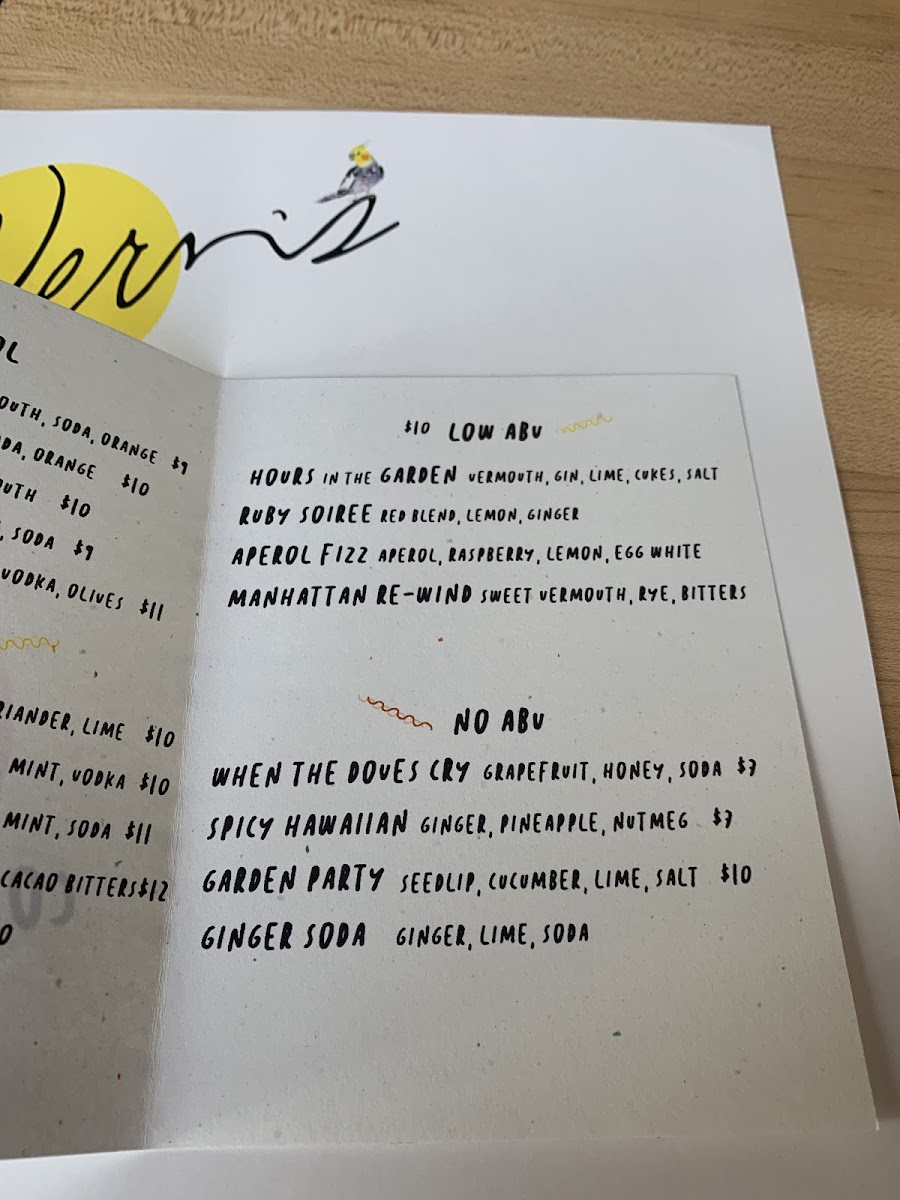 Verris
OL
OUTH, SODA, ORANGE $9
DA, ORANGE $10
OUTH $10
, SODA $9
VODKA, OLIVES $11
RIANDER, LIME $10
MINT, VODKA $10
MINT, SODA $11
CACAO BITTERS $12
0
$10 LOW ABV
HOURS IN THE GARDEN VERMOUTH, GIN, LIME, CUKES, SALT
RUBY SOIREE RED BLEND, LEMON, GINGER
APEROL FIZZ APEROL, RASPBERRY, LEMON, EGG WHITE
MANHATTAN RE-WIND SWEET VERMOUTH, RYE, BITTERS
NO ABV
WHEN THE DOVES CRY GRAPEFRUIT, HONEY, SODA $7
SPICY HAWAIIAN GINGER, PINEAPPLE, NUTMEG $7
GARDEN PARTY SEEDLIP, CUCUMBER, LIME, SALT $10
GINGER SODA GINGER, LIME, SODA